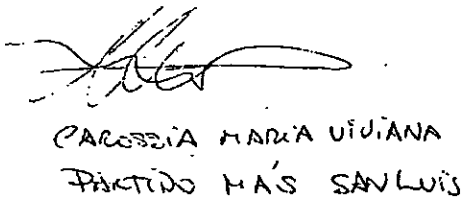 CAROZZIA MARIA VIVIANA
PARTIDO MÁS SAN LUIS